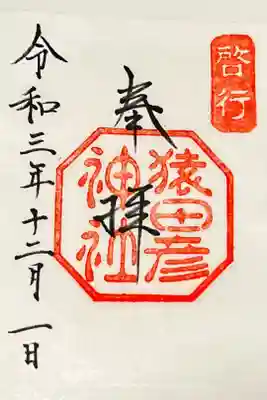 啓行
奉拝
猿田彦
神社
令和三年十二月一日